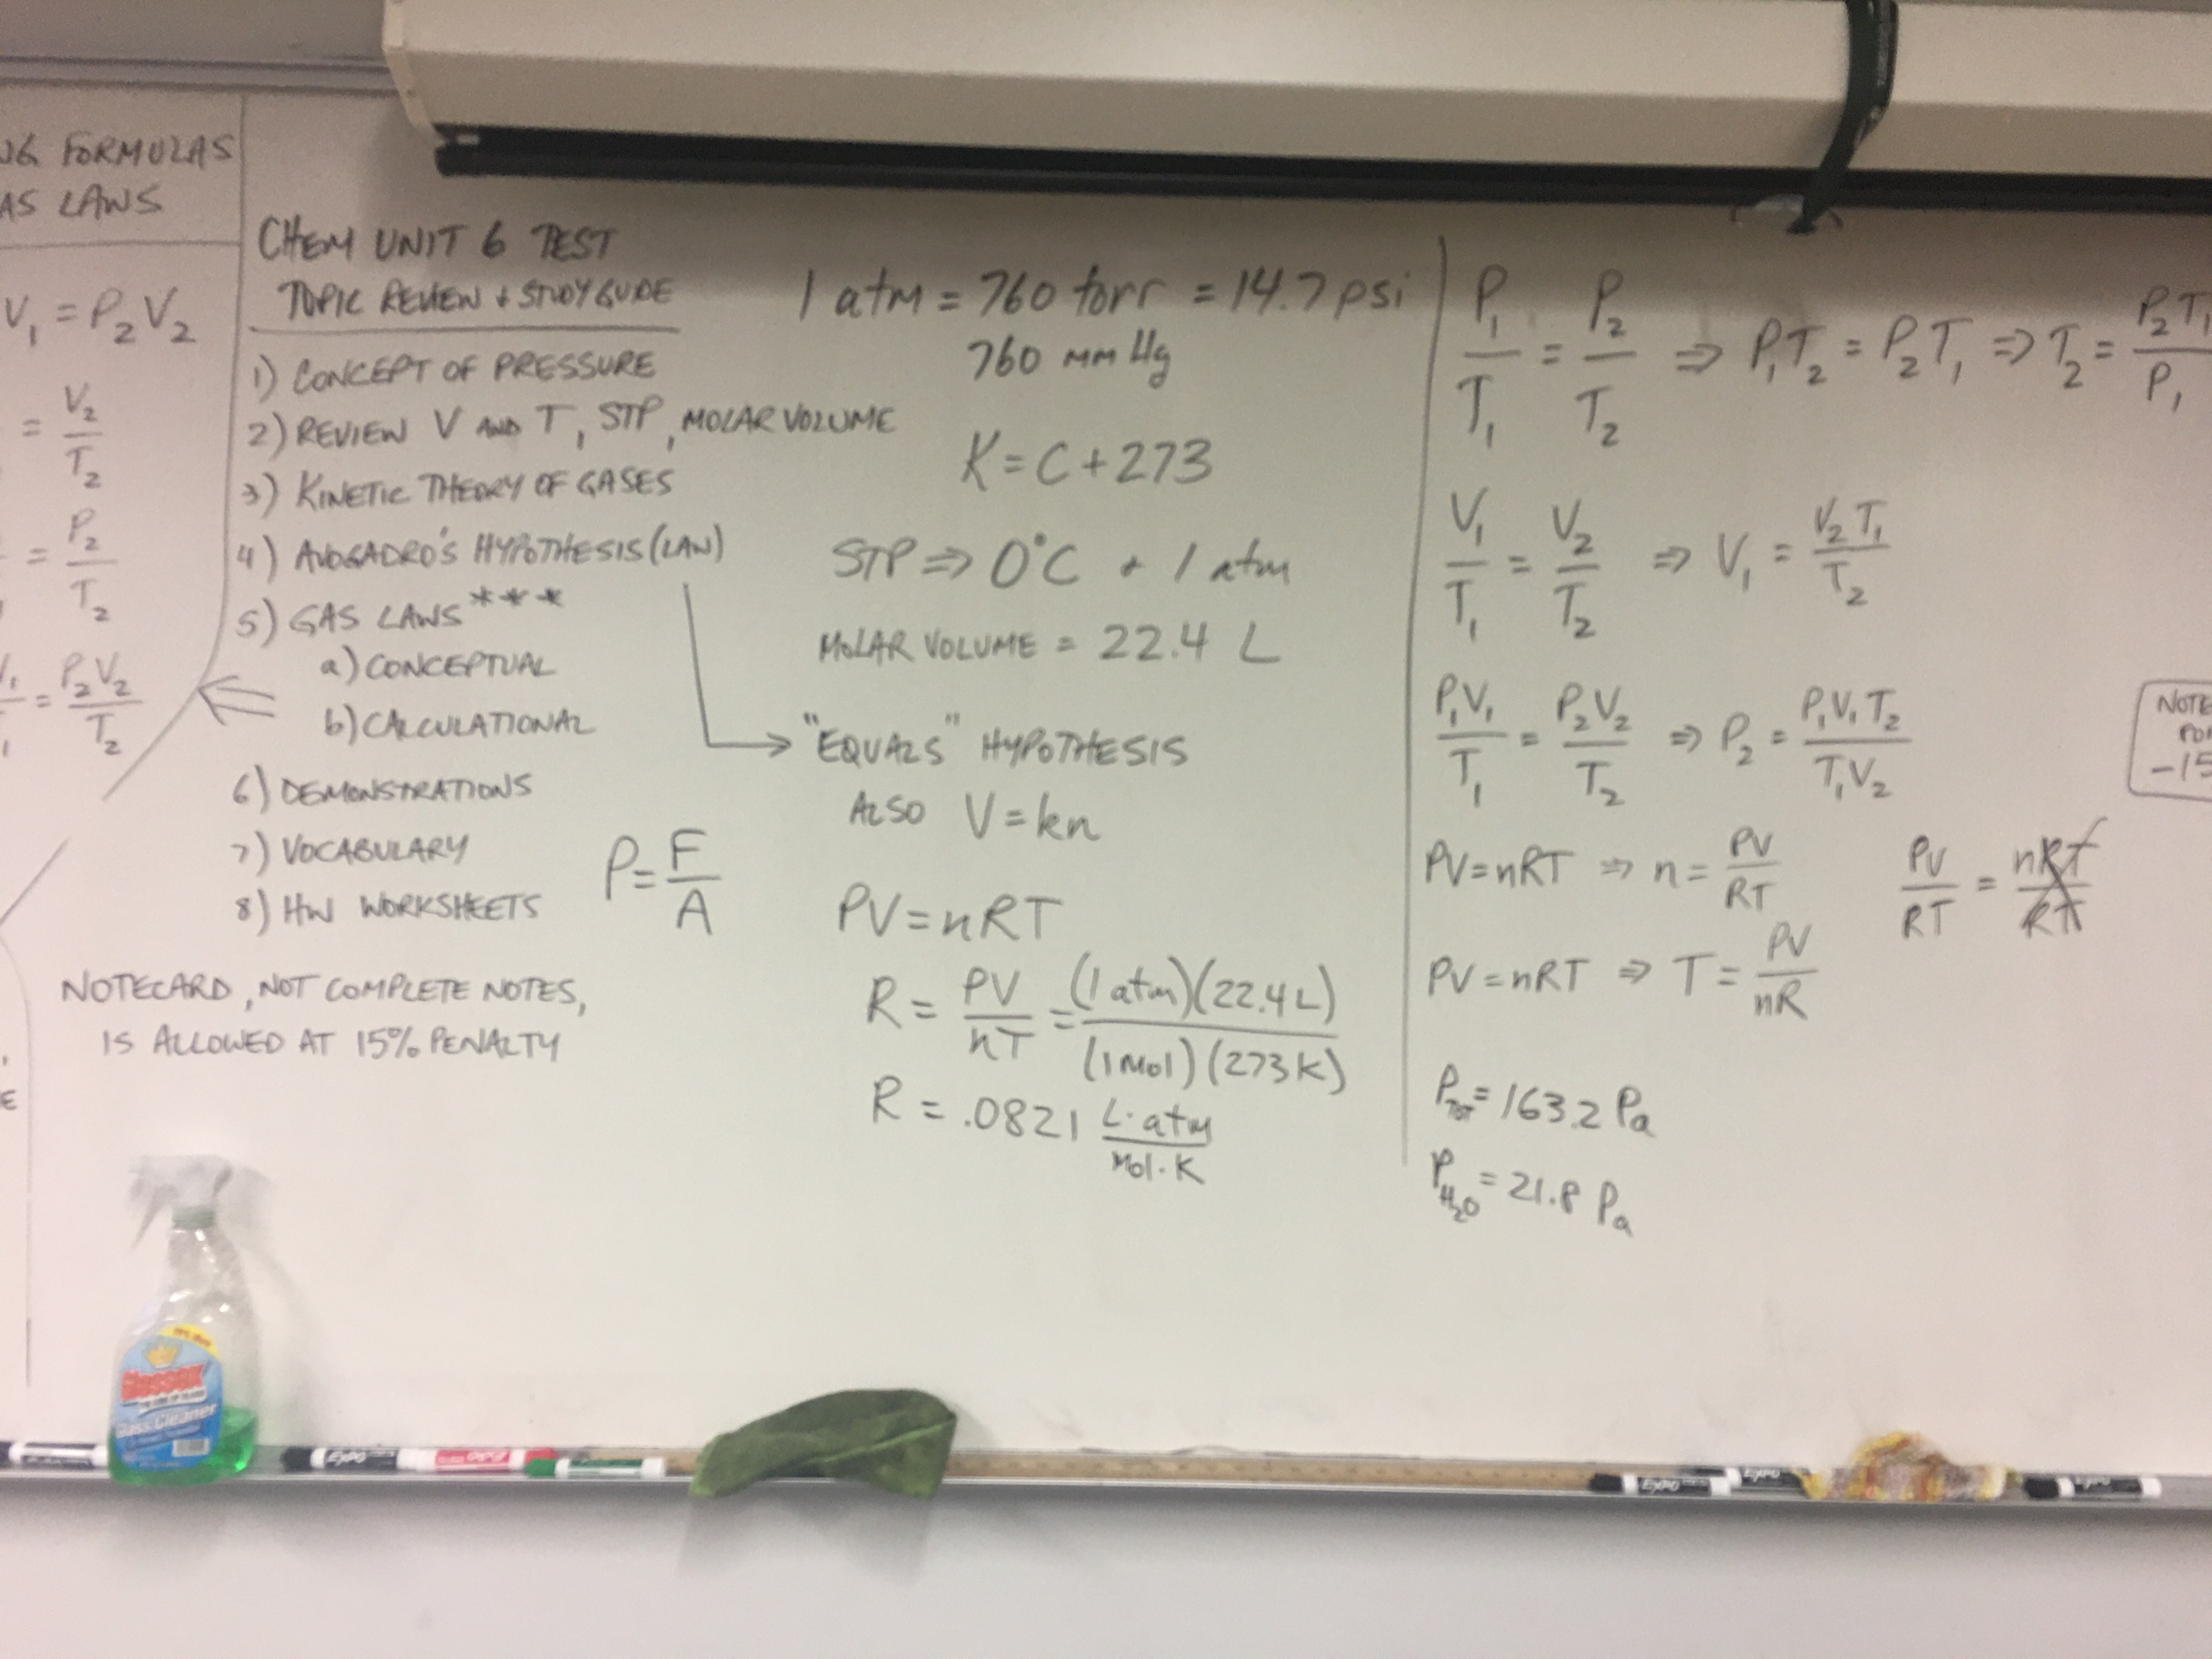 FORMULAS
LAWS
V₁ = P₂V₂
= V₂/T₂
= P₂/T₂
= P₂V₂/T₂
CHEM UNIT 6 TEST
TOPIC REVIEW + STUDY GUIDE
1) CONCEPT OF PRESSURE
2) REVIEW V AND T, STP, MOLAR VOLUME
3) KINETIC THEORY OF GASES
4) AVOGADRO'S HYPOTHESIS (LAW)
5) GAS LAWS ***
a) CONCEPTUAL
b) CALCULATIONAL
6) DEMONSTRATIONS
7) VOCABULARY
8) HW WORKSHEETS
P = F/A
NOTECARD, NOT COMPLETE NOTES,
IS ALLOWED AT 15% PENALTY
1 atm = 760 torr = 14.7 psi
760 mm Hg
K = C + 273
STP ⇒ 0°C + 1 atm
MOLAR VOLUME = 22.4 L
"EQUALS" HYPOTHESIS
ALSO V = kn
PV = nRT
R = PV/nT = (1 atm)(22.4 L)/(1 mol)(273 K)
R = .0821 L·atm/mol·K
P₁/T₁ = P₂/T₂ ⇒ P₁T₂ = P₂T₁ ⇒ T₂ = P₂T₁/P₁
V₁/T₁ = V₂/T₂ ⇒ V₁ = V₂T₁/T₂
P₁V₁/T₁ = P₂V₂/T₂ ⇒ P₂ = P₁V₁T₂/T₁V₂
PV = nRT ⇒ n = PV/RT
PV/RT = nRT/RT
PV = nRT ⇒ T = PV/nR
P_TOT = 163.2 Pa
P_H₂O = 21.8 Pa
NOTE
-15
Glass Cleaner
EXPO
EXPO
EXPO
EXPO
EXPO